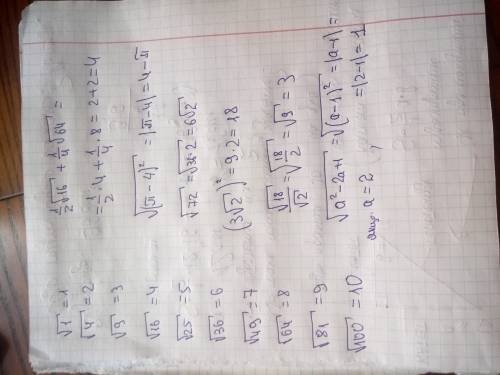 √1 = 1
√4 = 2
√9 = 3
√16 = 4
√25 = 5
√36 = 6
√49 = 7
√64 = 8
√81 = 9
√100 = 10
1/2 √16 + 1/4 √64 =
= 1/2 · 4 + 1/4 · 8 = 2 + 2 = 4
√(π − 4)² = |π − 4| = 4 − π
√72 = √36·2 = 6√2
(3√2)² = 9 · 2 = 18
√18/√2 = √18/2 = √9 = 3
√a² − 2a + 1 = √(a − 1)² = |a − 1| =
якщо a = 2, = |2 − 1| = 1